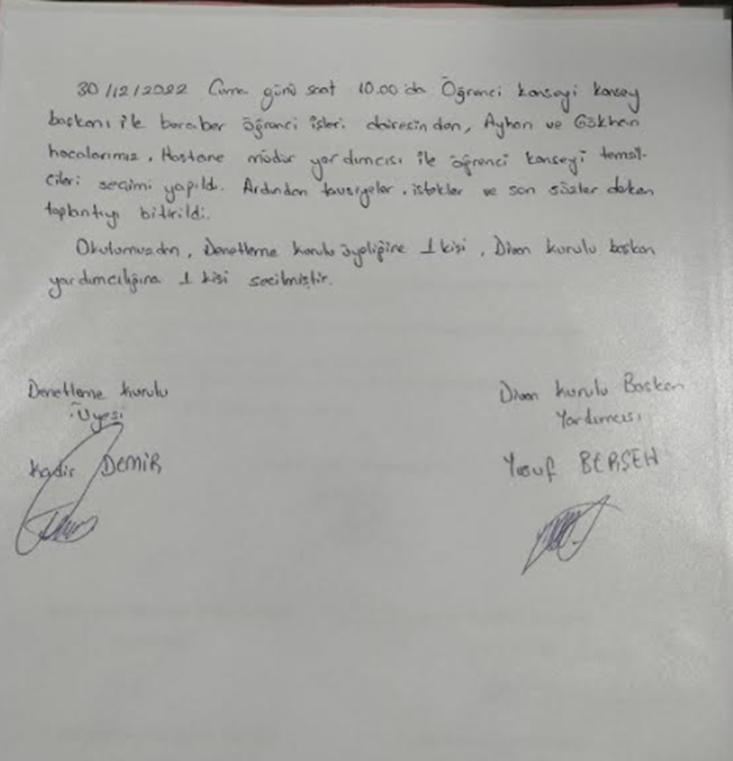 30/12/2022 Cuma günü saat 10.00'da Öğrenci konseyi konsey
başkanı ile beraber öğrenci işleri dairesinden, Ayhan ve Gökhan
hocalarımız, Hastane müdür yardımcısı ile öğrenci konseyi temsil-
cileri seçimi yapıldı. Ardından tavsiyeler, istekler ve son sözler
toplantıyı bitirildi.
Okulumuzdan, Denetleme kurulu üyeliğine 1 kişi, Divan kurulu başkan
yardımcılığına 1 kişi seçilmiştir.
Denetleme kurulu
Üyesi
Kadir DEMİR
Divan kurulu Başkan
Yardımcısı
Yusuf